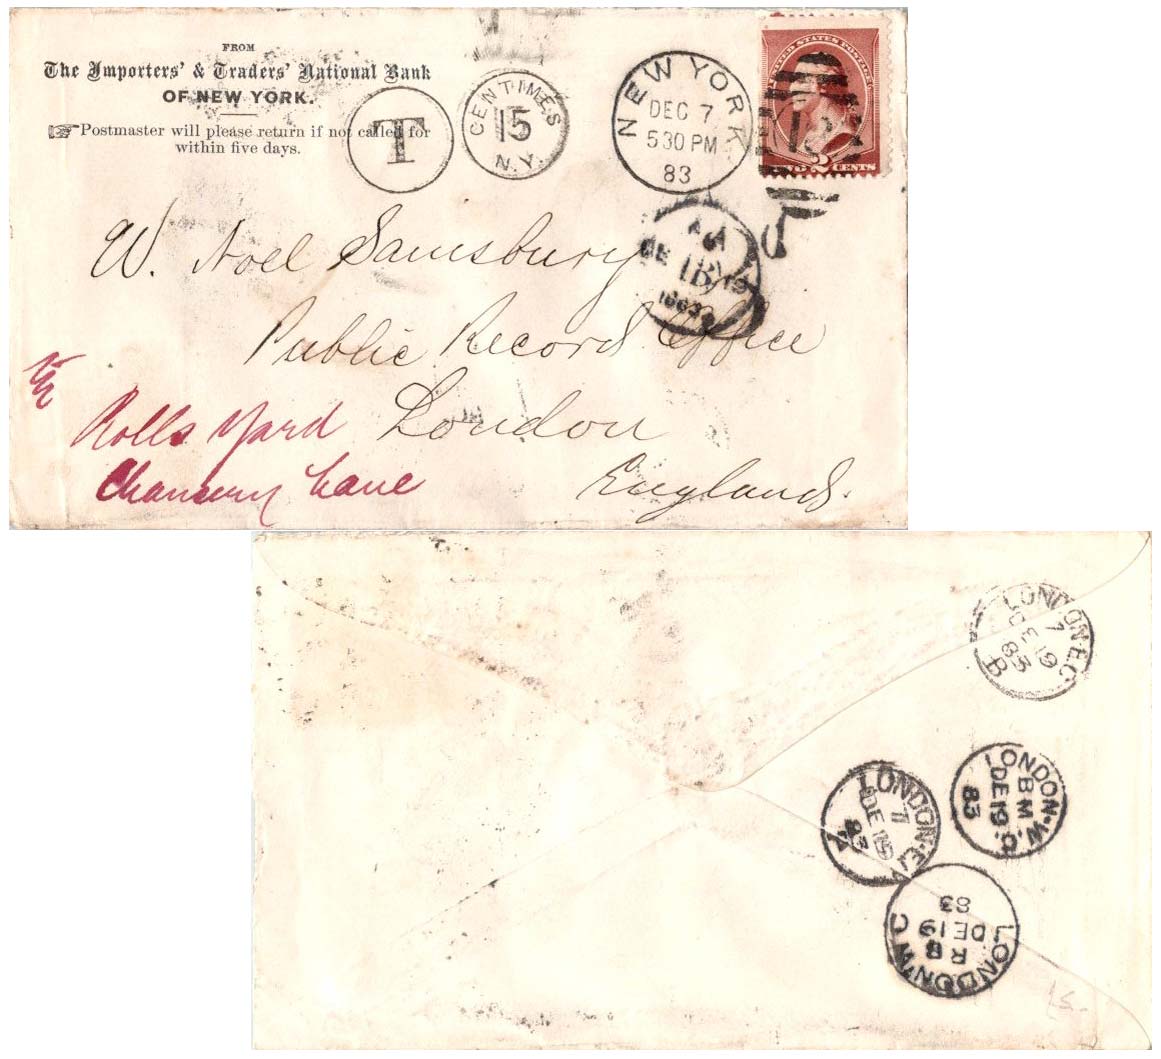 FROM
The Importers' & Traders' National Bank
OF NEW YORK.
Postmaster will please return if not called for
within five days.
T
CENTIMES
15
N.Y.
NEW YORK
DEC 7
5 30 PM
83
UNITED STATES POSTAGE
2
CENTS
W. Noel Sainsbury
Public Record Office
London
England.
Rolls Yard
Chancery Lane
LONDON·E.C
7
DE 19
83
B
LONDON·W.C
BM
DE 19
83
LONDON·E.C
7
DE 19
83
LONDON W C
R B
DE 19
83